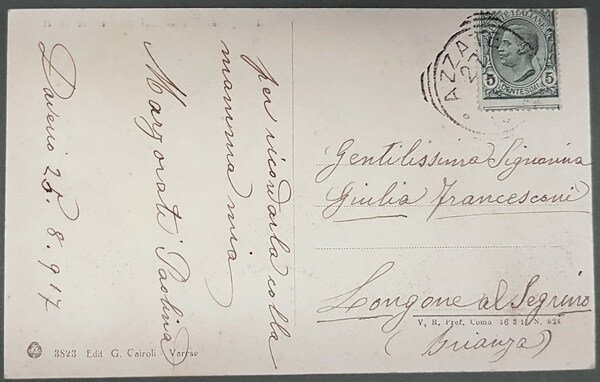 per ricordarla colla
mamma mia
Margorati Paolina
Daverio 25. 8. 917
AZZA
22
5 5
Gentilissima Signorina
Giulia Francesconi
Longone al Segrino
(Brianza)
V. R. Pref. Como 16 8 1 N. 824
3823 Edit G. Cairoli - Varese